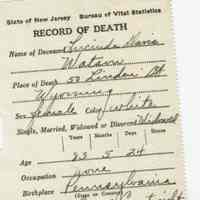 State of New Jersey Bureau of Vital Statistics
RECORD OF DEATH
Name of Deceased Lucinda Davis
Watson
Place of Death 50 Linden St
Wyoming
Sex Female Color White
Single, Married, Widowed or Divorced Widowed
Years Months Days
Age 83 5 24
Occupation none
Birthplace Pennsylvania
(State or Country)